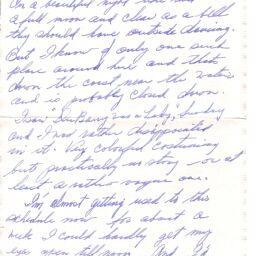 On a beautiful night like this
a full moon and clear as a bell
they should have outside dancing.
But I know of only one such
place around here and that's
down the coast near the water
and is probably closed down.
I saw "DuBarry was a Lady", Sunday
and I was rather disappointed
in it. Very colorful costuming
but practically no story - or at
least a rather vague one.
I'm almost getting used to this
schedule now. For about a
week I could hardly get my
eyes open till noon. And I'd